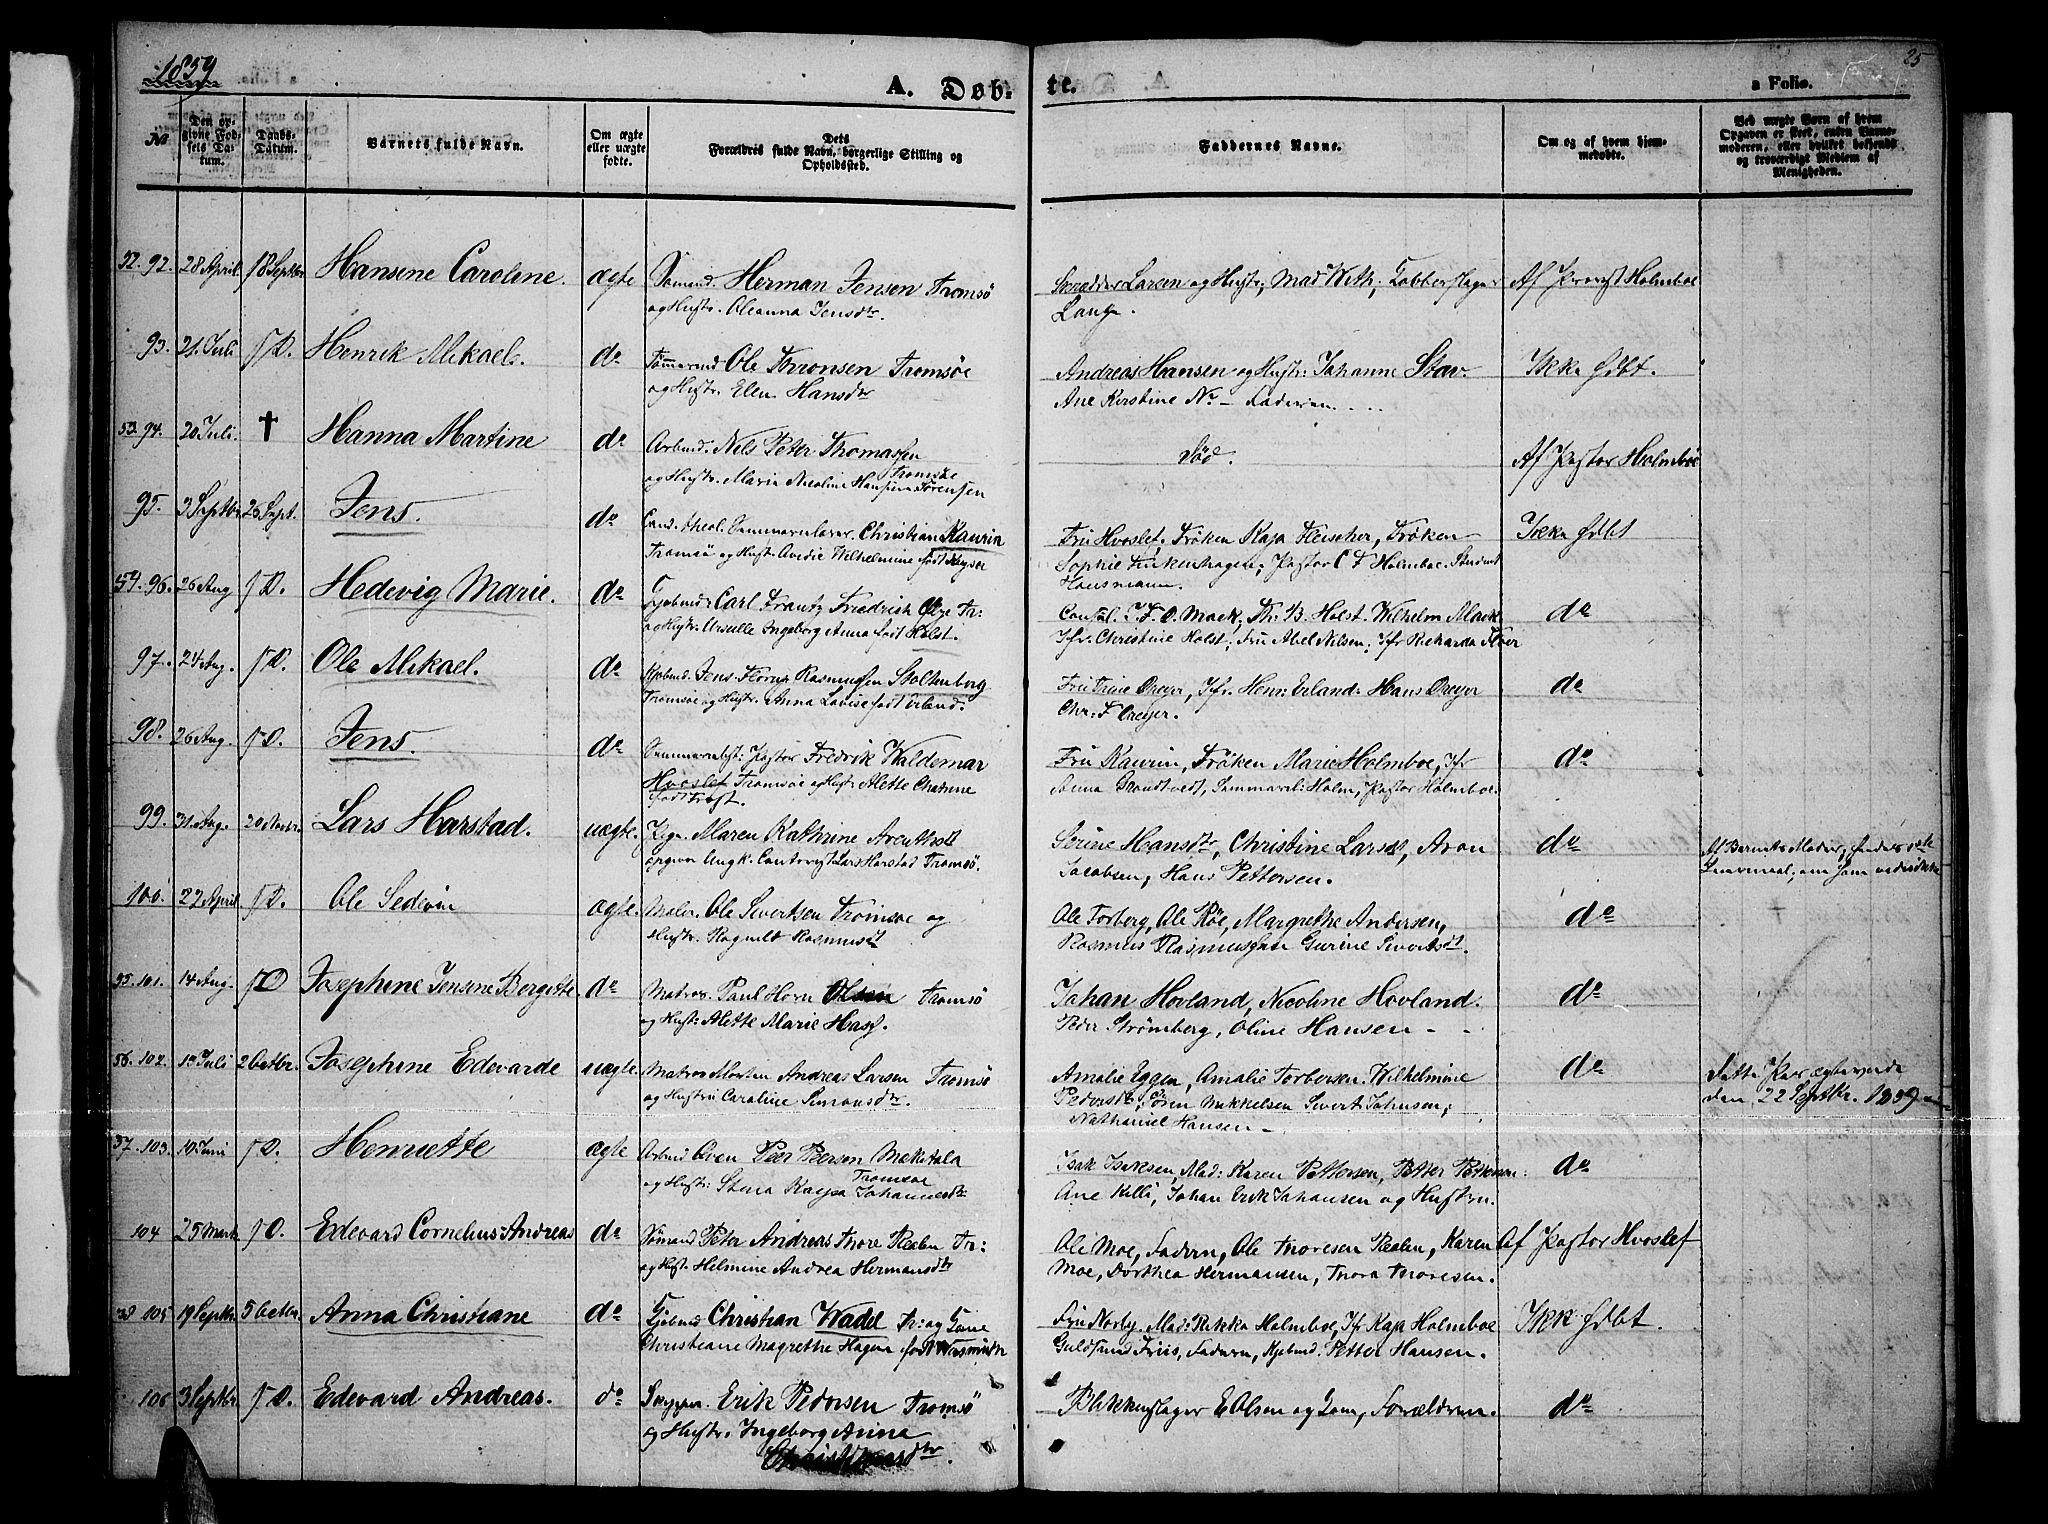 1859
A. Døb-
te.
a Folio.
25
No
Den op-
givne Fød-
sels Da-
tum.
Daabs-
Datum.
Barnets fulde Navn.
Om ægte
eller uægte
fødte.
Dets
Forældres fulde Navn, borgerlige Stilling og
Opholdssted.
Faddernes Navne.
Om og af hvem hjem-
medøbte.
Ved uægte Børn af hvem
Opgaven er skeet, enten Barne-
moderen, eller hvilket bekjendt
og troværdigt Medlem af
Menigheden.
52. 92. 28 April 18 Septbr Hansine Caroline. ægte Sømand. Herman Jensen Tromsö
og Hustr. Oleanna Jensdtr.
Skrædder Larsen og Hustr; Mad With; Kobberslager
Lange.
Af Provst Holmboe
93. 21. Juli s. D. Henrik Mikael. do Tømmermd Ole Thronsen Tromsøe
og Hustr. Elen Hansdtr
Andreas Hansen og Hustr: Johanne Stav.
Ane Kirstine N. – Faderen
Ikke hdbt.
53. 94. 20 Juli. † Hanna Martine do Arbmd. Nils Peter Thomassen
Tromsøe
og Hustr. Maria Nicoline Hansine Sørensen
Død.
Af Pastor Holmboe
95. 3 Septbr 25 Sept. Jens. do Cand. theol. Seminarielærer Christian Kaurin
Tromsö og Hustr. Avedie Wilhelmine født Kyser
Fru Hvoslef, Frøken Kaja Fleischer, Frøken
Sophie Finkenhagen, Pastor C F Holmboe. Student
Hansmann.
Ikke hdbt
54. 96. 26 Aug s. D. Hedevig Marie. do Kjøbmd: Carl Frantz Friedrich Tr:
og Hustr. Ursulle Ingeborg Anna født Holst.
Consul. J. F. D. Mack; Th: B. Holst. Wilhelm Mack
Jfr. Christine Holst; Fru Abel Nilsen; Jfr Richarda Fleer
do
97. 24 Aug. s. D. Ole Mikael. do Kjøbmd. Jens Florus Rasmussen Stoltenberg
Tromsøe og Hustr. Anna Lovise født Erland.
Fru Trine Dreyer, Jfr. Henr: Erland. Hans Dreyer
Chr: F Dreyer.
do
98. 26 Aug. s. D. Jens. do Seminariebest: Pastor Fredrik Waldemar
Hvoslef Tromsøe og Hustr Alette Chatrine
født Frost.
Fru Kaurin, Frøken Marie Holmboe, Jfr
Anna Brandtvedt, Seminaril: Holm, Pastor Holmboe.
do
99. 31 Aug. 20 Novbr. Lars Harstad. uægte. Pigen Maren Kathrine Arentsdt
opgiver Ungk. Contorist Lars Harstad Tromsö.
Serine Hansdtr, Christine Larsdt, Aron
Jacobsen, Hans Pettersen.
do
Af Barnets Moder;
100. 22 April s. D. Ole Sedivin ægte. Maler. Ole Sivertsen Tromsøe og
Hustr. Ragnild Rasmusdt
Ole Torberg, Ole Röe, Margrethe Andersen,
Rasmus Rasmussen Gurine Sivertsdt.
do
55. 101. 14 Aug. s. D Josephine Jensine Bergitte do Matros. Paul Horn Olsen Tromsö
og Hustr: Alette Marie Hass.
Johan Hovland, Nicoline Hovland.
Peder Strømberg, Oline Hansen –
do
56. 102. 13 Juli 2 Octbr. Josephine Edevarde uægte. Matros Morten Andreas Larsen Tromsö
og Hustru Caroline Simonsdtr.
Amalie Eggen, Amalie Torbersen. Wilhelmine
Pedersdtr, Sören Mikkelsen Sivert Johnsen;
Nathaniel Hansen –
do
Dette Par ægteviede
den 22 Septbr. 1859
57. 103. 10 Juni s. D. Henriette ægte Arbmd Even Peer Peersen Makitala
Tromsøe
og Hustr: Stina Kajsa Johannesdtr
Isak Isaksen, Mad: Karen Pettersen, Petter Pettersen:
Ane Killi, Johan Erik Johansen og Hustru.
do
104 25 Marts s. D. Edevard Cornelius Andreas do Sömand Peter Andreas Thore Realen Tr:
og Hustr Helmine Andrea Hermansdtr
Ole Moe, Faderen, Ole Thoresen Realen, Karen
Moe, Dorthea Hermansen, Thora Thoresen.
Af Pastor Hvoslef
58 105 19 Septbr. 5 Octbr. Anna Christiane do Kjøbmd Christian Wadel Tr: og Kone
Christiane Magrethe Hagen født Wasmuth
Fru Norby. Mad: Rekka Holmboe, Jfr Kaja Holmboe
Guldsmed Friis, Faderen, Kjøbmd. Petter Hansen.
Ikk hdbt.
106 3 Septbr. s. D. Edevard Andreas. do Skipper. Erik Pedersen Tromsö
og Hustr. Ingeborg Anna
Blikkenslager E Olsen og Kone, Forældrene.
do